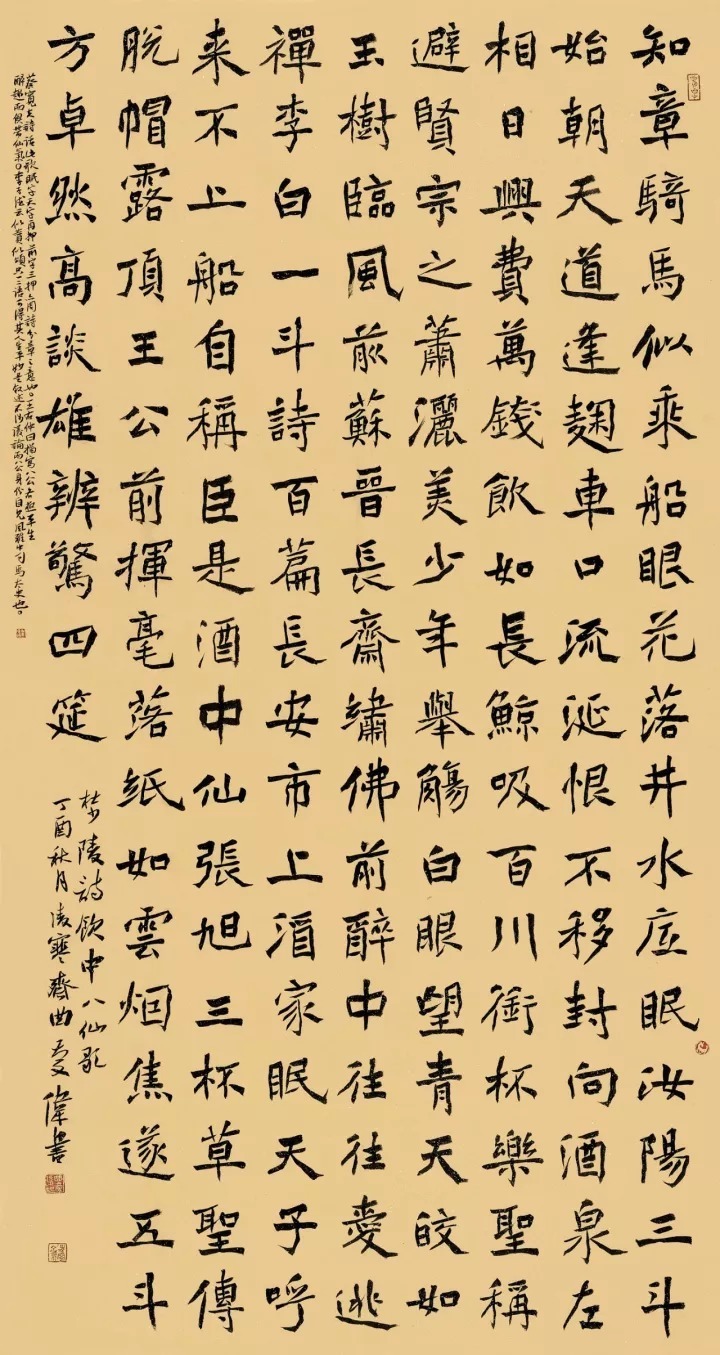 知章騎馬似乘船眼花落井水底眠汝陽三斗
始朝天道逢麹車口流涎恨不移封向酒泉左
相日興費萬錢飲如長鯨吸百川銜杯樂聖稱
避賢宗之蕭灑美少年舉觴白眼望青天皎如
玉樹臨風前蘇晉長齋繡佛前醉中往往愛逃
禪李白一斗詩百篇長安市上酒家眠天子呼
来不上船自稱臣是酒中仙張旭三杯草聖傳
脫帽露頂王公前揮毫落紙如雲烟焦遂五斗
方卓然高談雄辨驚四筵
杜少陵詩飲中八仙歌
丁酉秋月凌寒齋曲慶偉書
蔡寬夫詩話此歌眠字天字再押前字三押